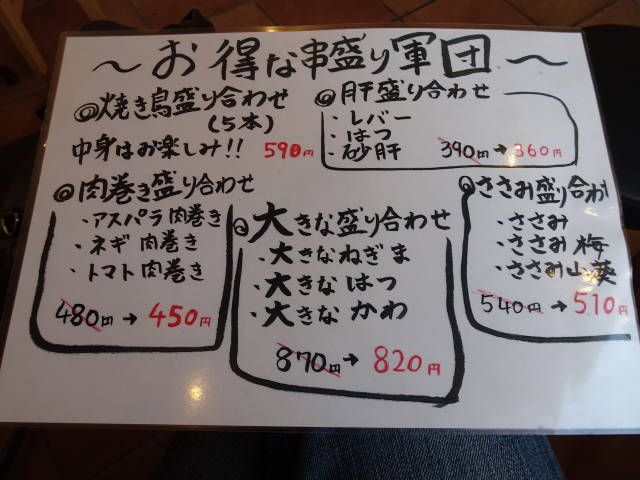 ～お得な串盛り軍団～
◎焼き鳥盛り合わせ
(5本)
中身はお楽しみ!! 590円
◎肝盛り合わせ
・レバー
・はつ
・砂肝 390円→360円
◎肉巻き盛り合わせ
・アスパラ肉巻き
・ネギ肉巻き
・トマト肉巻き
480円→450円
◎大きな盛り合わせ
・大きなねぎま
・大きなはつ
・大きなかわ
870円→820円
◎ささみ盛り合わ
・ささみ
・ささみ梅
・ささみ山葵
540円→510円